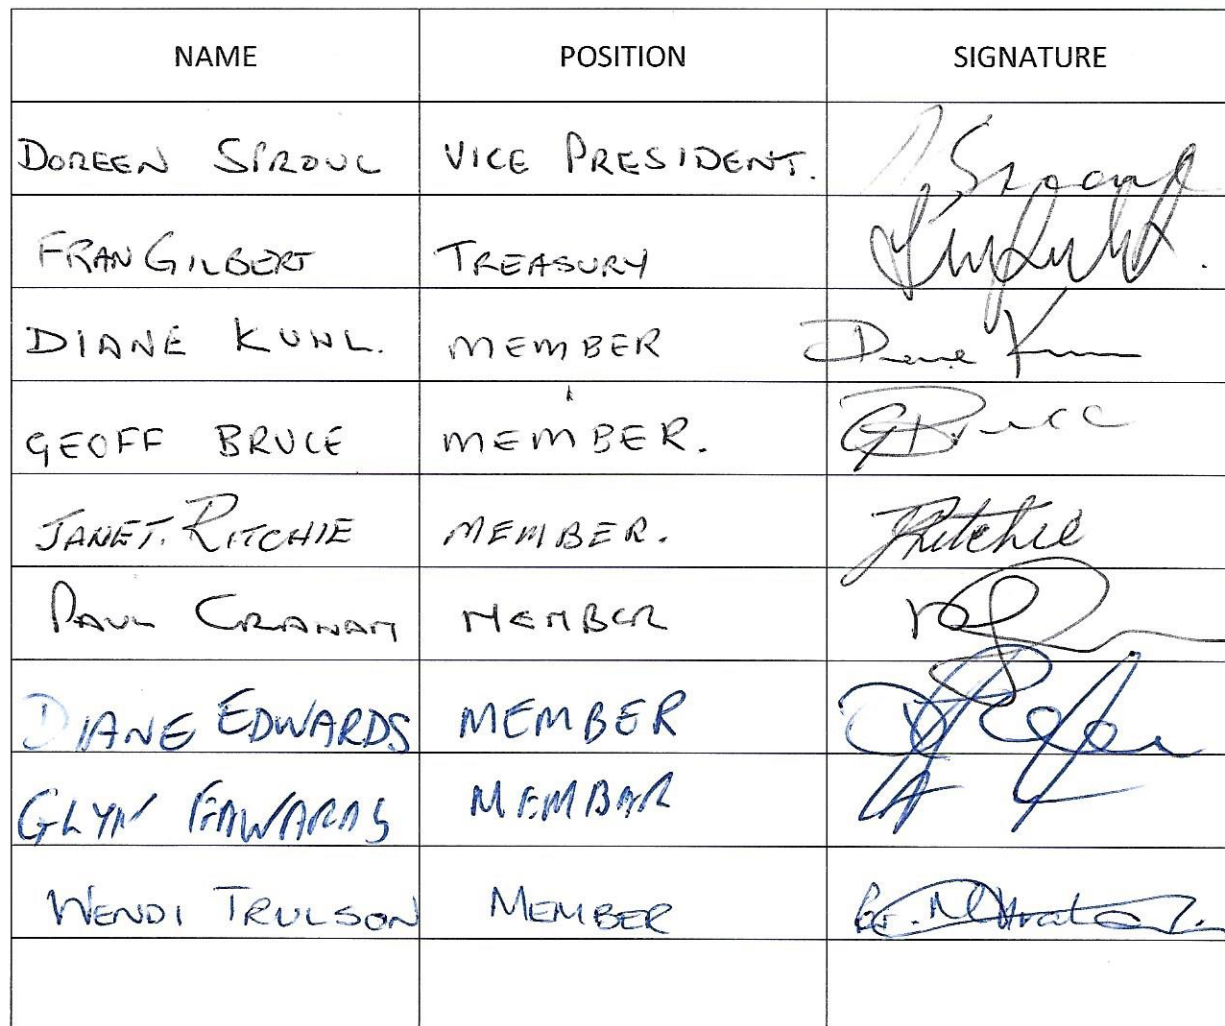 NAME POSITION SIGNATURE
DOREEN SPROUL VICE PRESIDENT. Sproul
FRAN GILBERT TREASURY
DIANE KUHL. MEMBER Diane
GEOFF BRUCE MEMBER. GBruce
JANET. RITCHIE MEMBER. JRitchie
PAUL CRANAM MEMBER
DIANE EDWARDS MEMBER
GLYN EDWARDS MEMBER
WENDI TRULSON MEMBER